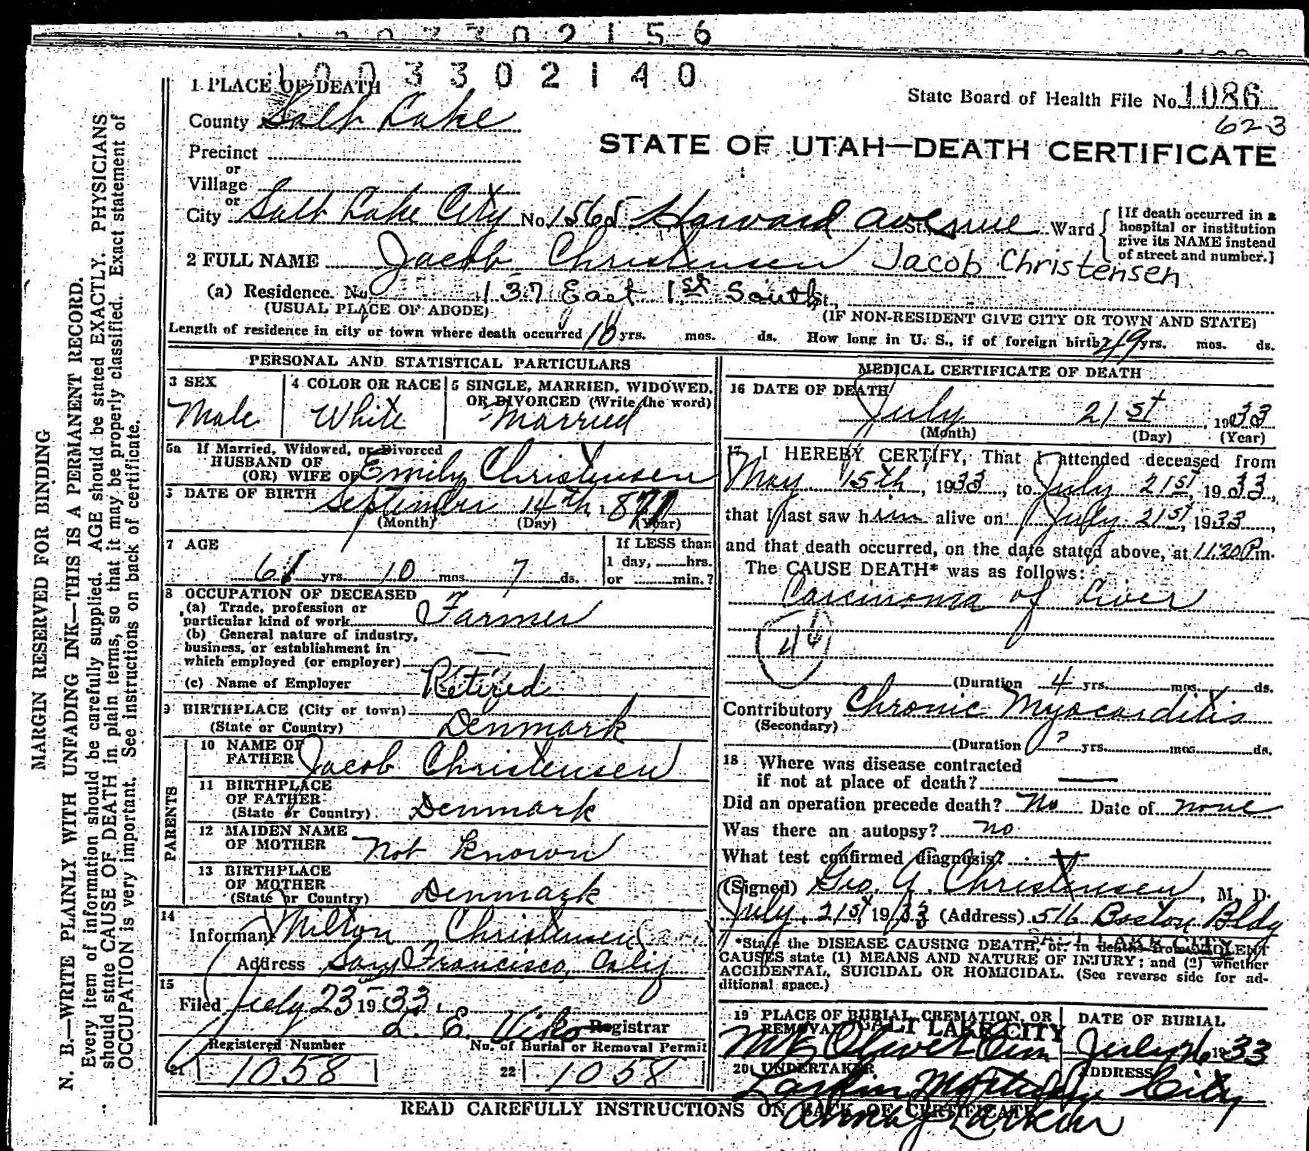 1003302156
1003302140
1 PLACE OF DEATH
State Board of Health File No. 1086
623
County Salt Lake
STATE OF UTAH—DEATH CERTIFICATE
Precinct
or
Village
or
City Salt Lake City No. 1565 Harvard Avenue St. Ward
[If death occurred in a
hospital or institution
give its NAME instead
of street and number.]
2 FULL NAME Jacob Christensen Jacob Christensen
(a) Residence. No. 137 East 1st South St.
(USUAL PLACE OF ABODE) (IF NON-RESIDENT GIVE CITY OR TOWN AND STATE)
Length of residence in city or town where death occurred 10 yrs. mos. ds. How long in U. S., if of foreign birth? 49 yrs. mos. ds.
PERSONAL AND STATISTICAL PARTICULARS
3 SEX 4 COLOR OR RACE 5 SINGLE, MARRIED, WIDOWED,
OR DIVORCED (Write the word)
Male White Married
5a If Married, Widowed, or Divorced
HUSBAND OF
(OR) WIFE OF Emily Christensen
6 DATE OF BIRTH September 14th 1871
(Month) (Day) (Year)
7 AGE If LESS than
61 yrs. 10 mos. 7 ds. 1 day, hrs.
or min.?
8 OCCUPATION OF DECEASED
(a) Trade, profession or
particular kind of work Farmer
(b) General nature of industry,
business, or establishment in
which employed (or employer) —
(c) Name of Employer Retired
9 BIRTHPLACE (City or town)
(State or Country) Denmark
PARENTS
10 NAME OF
FATHER Jacob Christensen
11 BIRTHPLACE
OF FATHER
(State or Country) Denmark
12 MAIDEN NAME
OF MOTHER Not Known
13 BIRTHPLACE
OF MOTHER
(State or Country) Denmark
14
Informant Milton Christensen
Address San Francisco, Calif
15
Filed July 23 1933
Registrar
Registered Number No. of Burial or Removal Permit
21 1058 22 1058
MEDICAL CERTIFICATE OF DEATH
16 DATE OF DEATH
July 21st, 1933
(Month) (Day) (Year)
17 I HEREBY CERTIFY, That I attended deceased from
May 15th, 1933, to July 21st, 1933,
that I last saw him alive on July 21st, 1933,
and that death occurred, on the date stated above, at 11:20 P.m.
The CAUSE DEATH* was as follows:
Carcinoma of Liver
46
(Duration 4 yrs. mos. ds.
Contributory Chronic Myocarditis
(Secondary)
(Duration ? yrs. mos. ds.
18 Where was disease contracted
if not at place of death? —
Did an operation precede death? No Date of none
Was there an autopsy? no
What test confirmed diagnosis?
(Signed) Geo. Y. Christensen, M. D.
July 21st 1933 (Address) 516 Boston Bldg
SALT LAKE CITY
*State the DISEASE CAUSING DEATH, or, in deaths from VIOLENT
CAUSES state (1) MEANS AND NATURE OF INJURY; and (2) whether
ACCIDENTAL, SUICIDAL OR HOMICIDAL. (See reverse side for ad-
ditional space.)
19 PLACE OF BURIAL, CREMATION, OR DATE OF BURIAL
REMOVAL SALT LAKE CITY
Mt. Olivet Cem July 26 1933
20 UNDERTAKER ADDRESS
Larkin Mortuary City
Alma J Larkin
READ CAREFULLY INSTRUCTIONS ON BACK OF CERTIFICATE
MARGIN RESERVED FOR BINDING
N. B.—WRITE PLAINLY WITH UNFADING INK—THIS IS A PERMANENT RECORD.
Every item of information should be carefully supplied. AGE should be stated EXACTLY. PHYSICIANS
should state CAUSE OF DEATH in plain terms, so that it may be properly classified. Exact statement of
OCCUPATION is very important. See instructions on back of certificate.